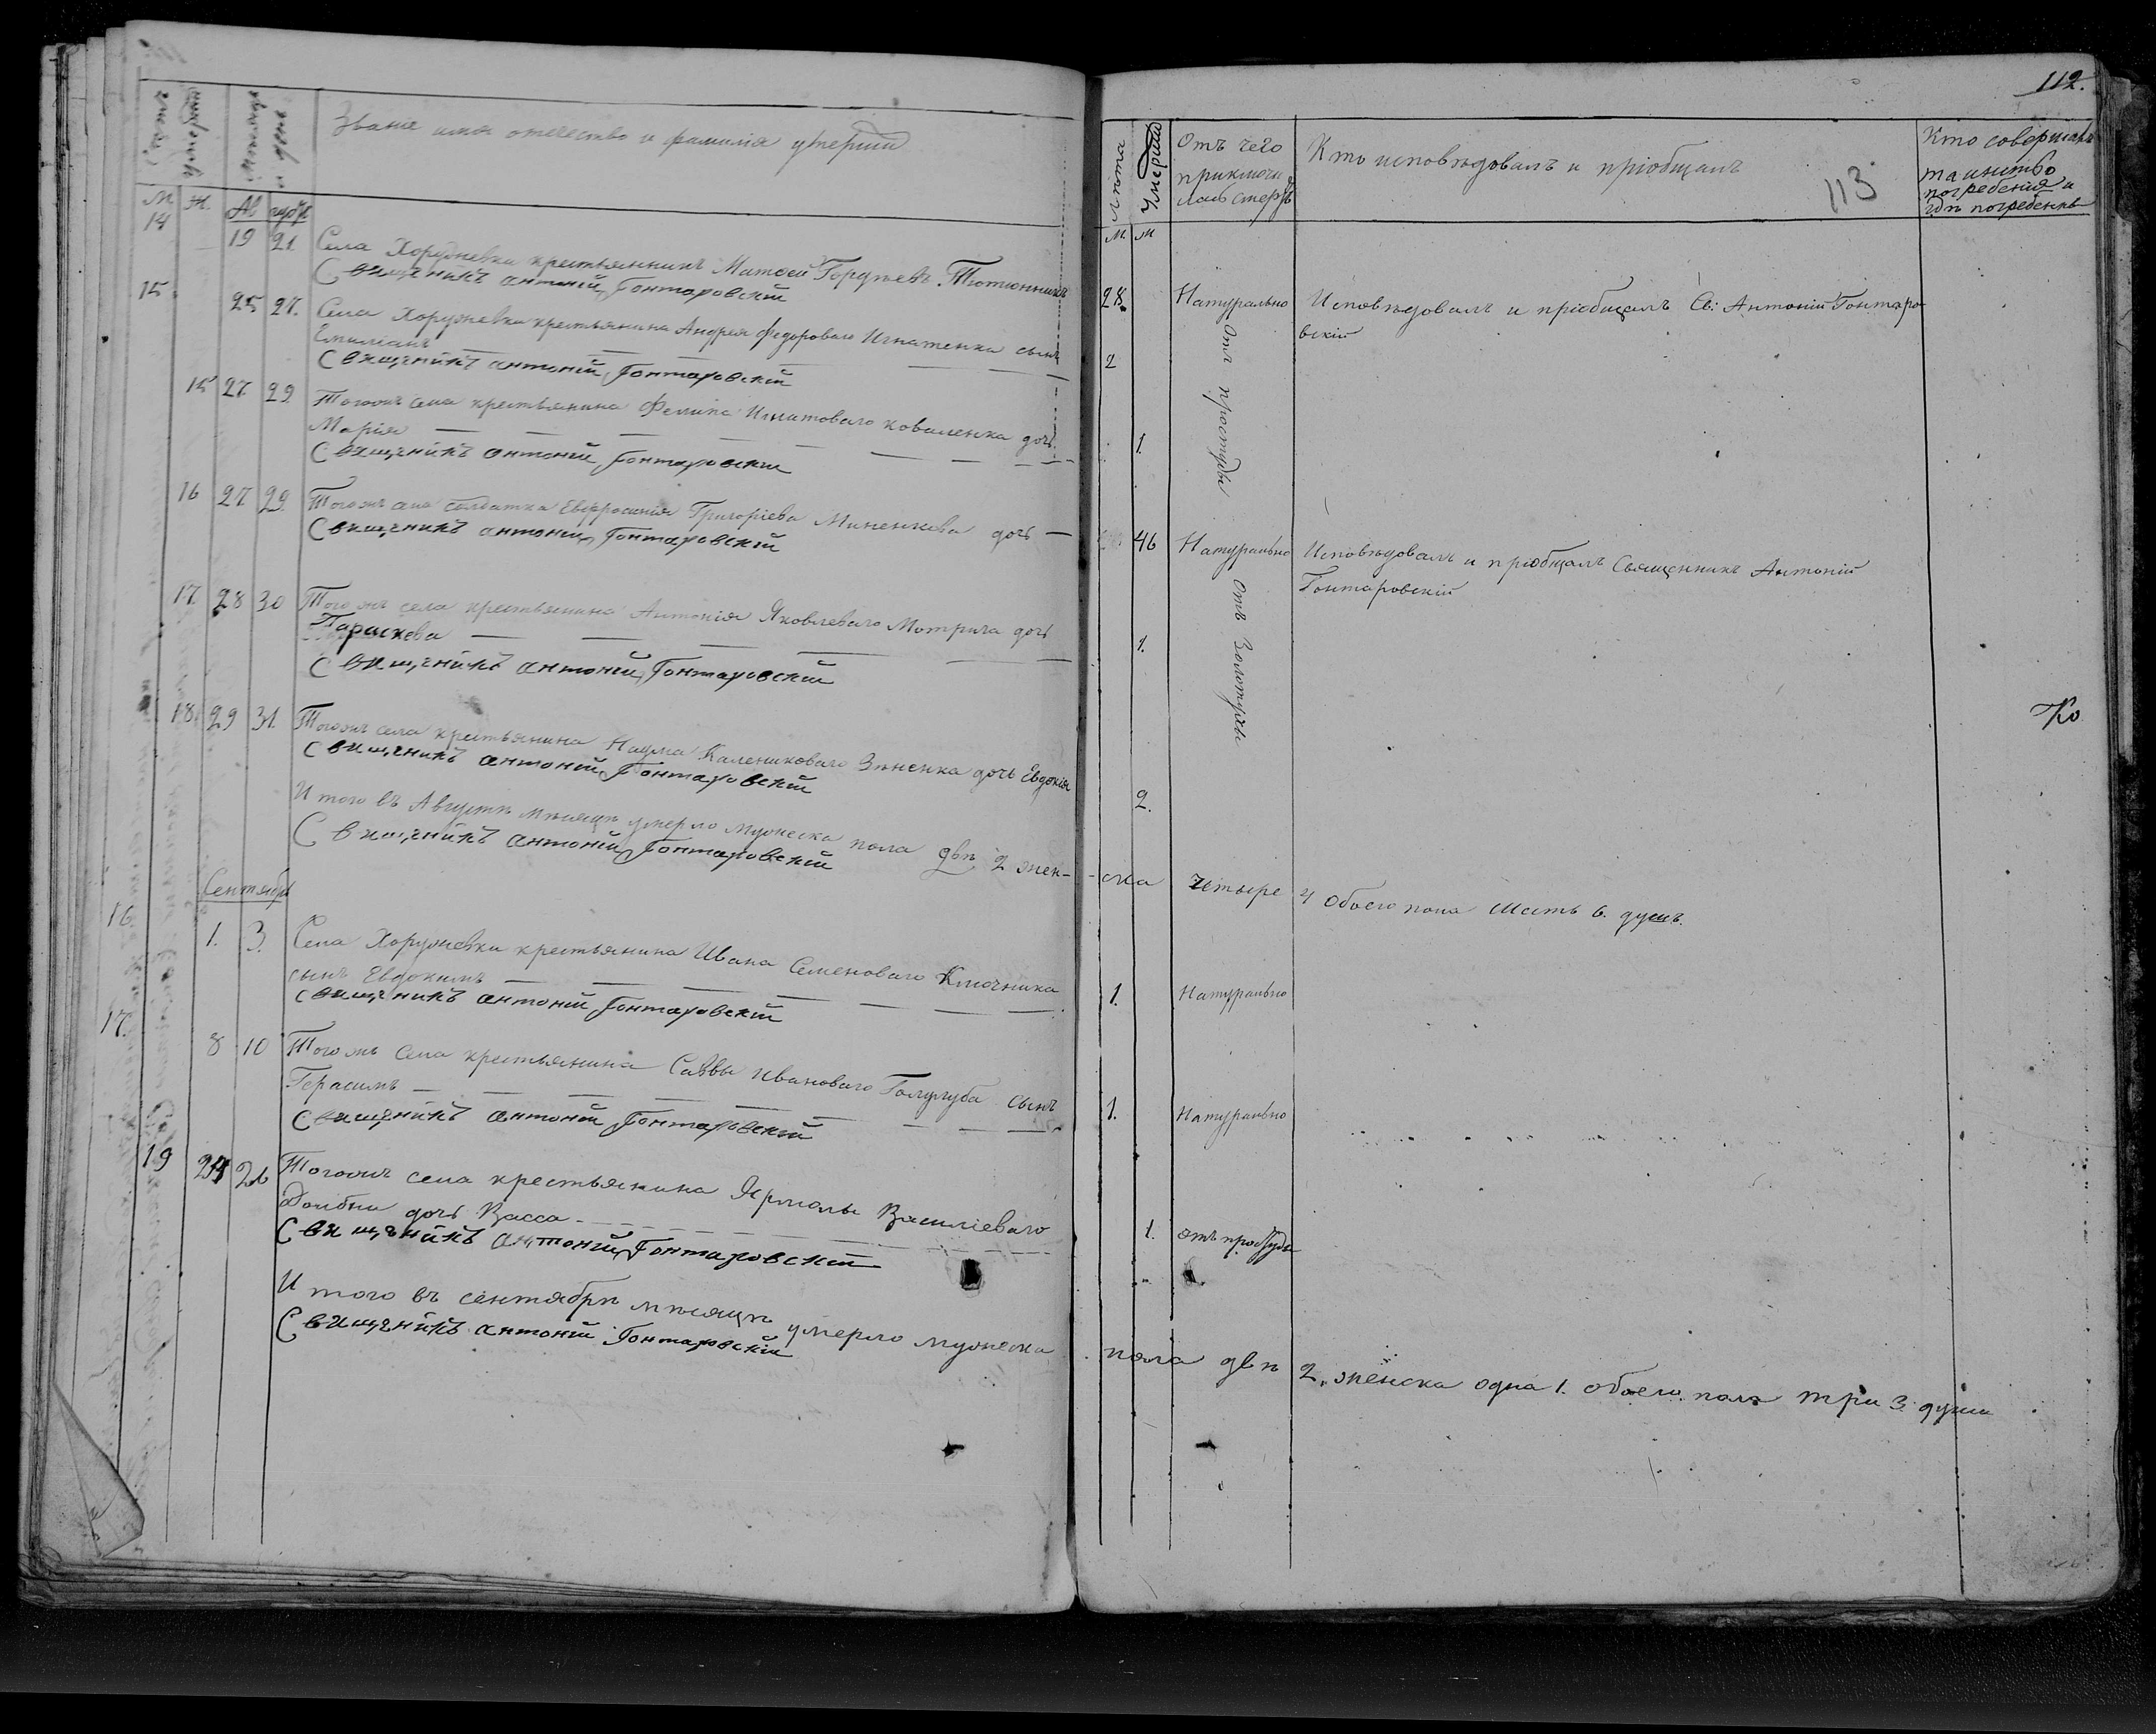 112.
113
Званіе имя отечество и фамилія умершии
М. Ж. Ав густъ
14 19 21. Села Хоружевки крестьяннинъ Матѳей Гордѣевъ Тютюнникъ
Священникъ Антоній Гонтаровскій
15. 25 27. Села Хоружевки крестьянина Андрея Федороваго Игнатенка сынъ
Емиліанъ
Священникъ Антоній Гонтаровскій
15 27 29 Тогожъ села крестьянина Филипа коваленка дочь
Марія
Священникъ Антоній Гонтаровскій
16 27 29. Тогожъ села солдатка Евфросинія Григоріева Миненкова дочь
Священникъ Антоній Гонтаровскій
17. 28 30 Тогожъ села крестьянина Антонія Яковлеваго Мотрича дочь
Параскева
Священникъ Антоній Гонтаровскій
18 29 31. Тогожъ села крестьянина Наума Калениковаго Зѣненка дочь Евдокія
Священникъ Антоній Гонтаровскій
И того въ Августѣ мѣсяцѣ умерло мужеска пола двѣ 2 жен-
Священникъ Антоній Гонтаровскій
Сентябрь
16. 1. 3. Села Хоружевки крестьянина Ивана Семеноваго Ключника
сынъ Евдокимъ
Священникъ Антоній Гонтаровскій
17. 8 10 Тогожъ села крестьянина Саввы Ивановаго Голугуба сынъ
Герасимъ
Священникъ Антоній Гонтаровскій
19 24 26 Тогожъ села крестьянина Ярмолы Василіеваго
Довбни дочь Васса
Священникъ Антоній Гонтаровскій
И того въ сентябрѣ мѣсяцѣ умерло мужеска
Священникъ Антоній Гонтаровскій
Лѣта Умерши
Отъ чего
приключи
лась смерть
Кто исповѣдовалъ и пріобщалъ
Кто совершалъ
таинство
погребенія и
гдѣ погребенъ
М
28. Натурально Исповѣдовалъ и пріобщалъ Св: Антоній Гонтаро
вскій
2 Отъ простуды
1.
46 Натурально Исповѣдовалъ и пріобщалъ Священникъ Антоній
Гонтаровскій
1. Отъ Золотухи
Ко
2.
-ска четыре 4 Обоего пола шесть 6. душъ.
1. Натурально
1. Натурально
1. отъ простуды
пола двѣ 2. женска одна 1. обоего пола три 3. души